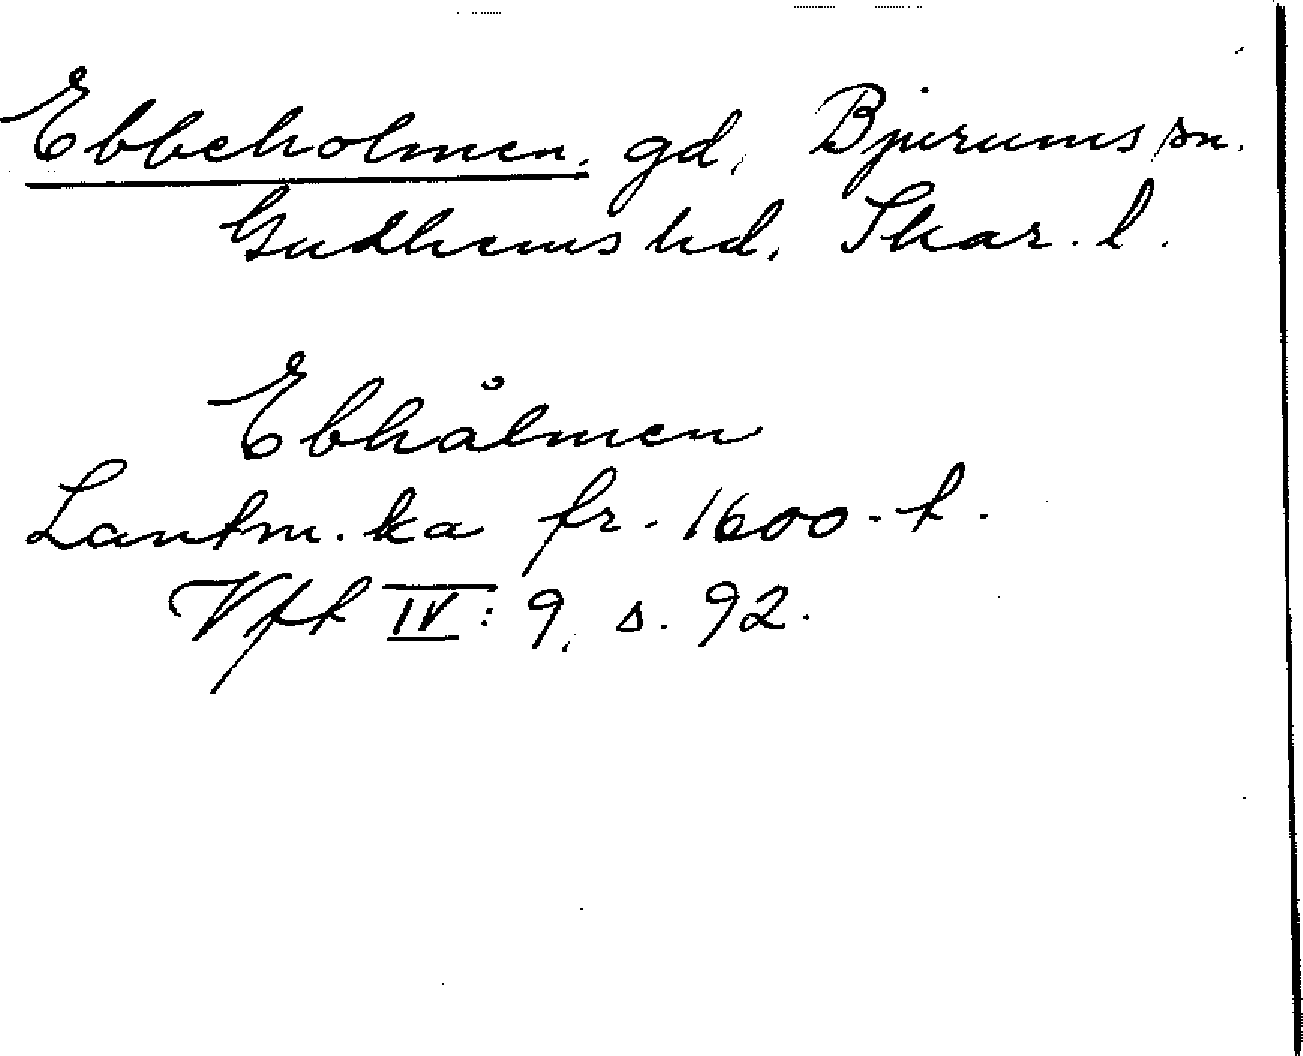 Ebbeholmen, gd, Bjurums sn.
Gudhems hd, Skar. l.
Ebhålmen
Lantm. ka fr. 1600-t.
Vft IV: 9, s. 92.